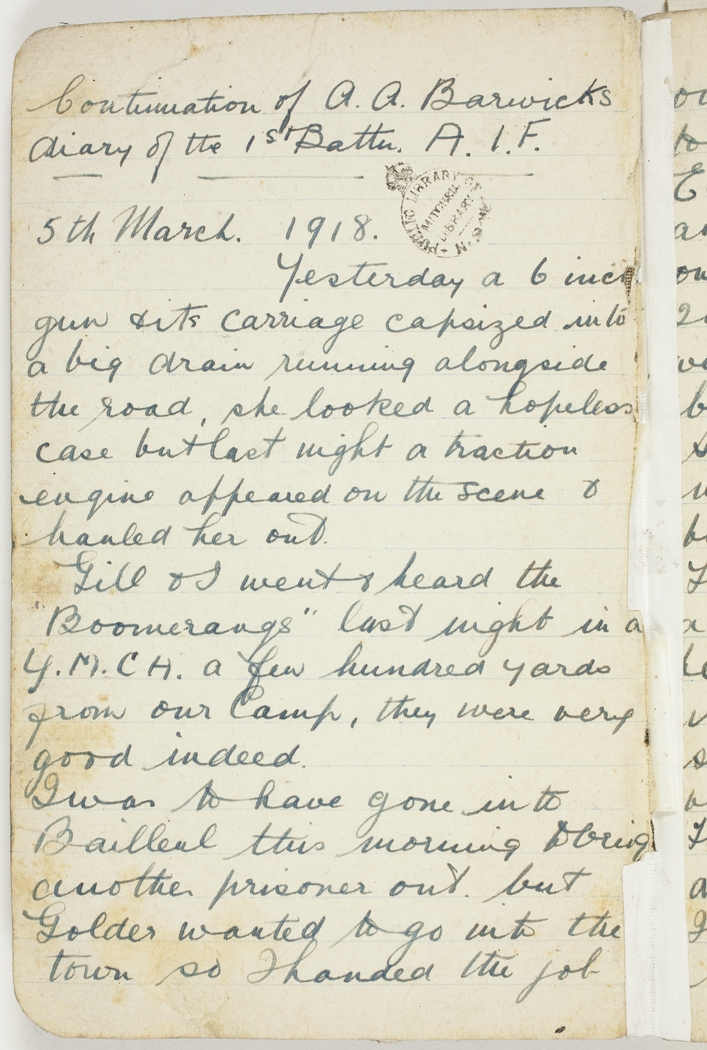 Continuation of A. A. Barwicks
diary of the 1st Battn. A. I. F.
PUBLIC LIBRARY OF N.S.W.
MITCHELL LIBRARY
5th March. 1918.
Yesterday a 6 inch
gun & its carriage capsized into
a big drain running alongside
the road, she looked a hopeless
case but last night a traction
engine appeared on the scene &
hauled her out.
Gill & I went & heard the
"Boomerangs" last night in a
Y.M.C.A. a few hundred yards
from our Camp, they were very
good indeed.
I was to have gone into
Bailleul this morning to bring
another prisoner out. but
Golder wanted to go into the
town so I handed the job